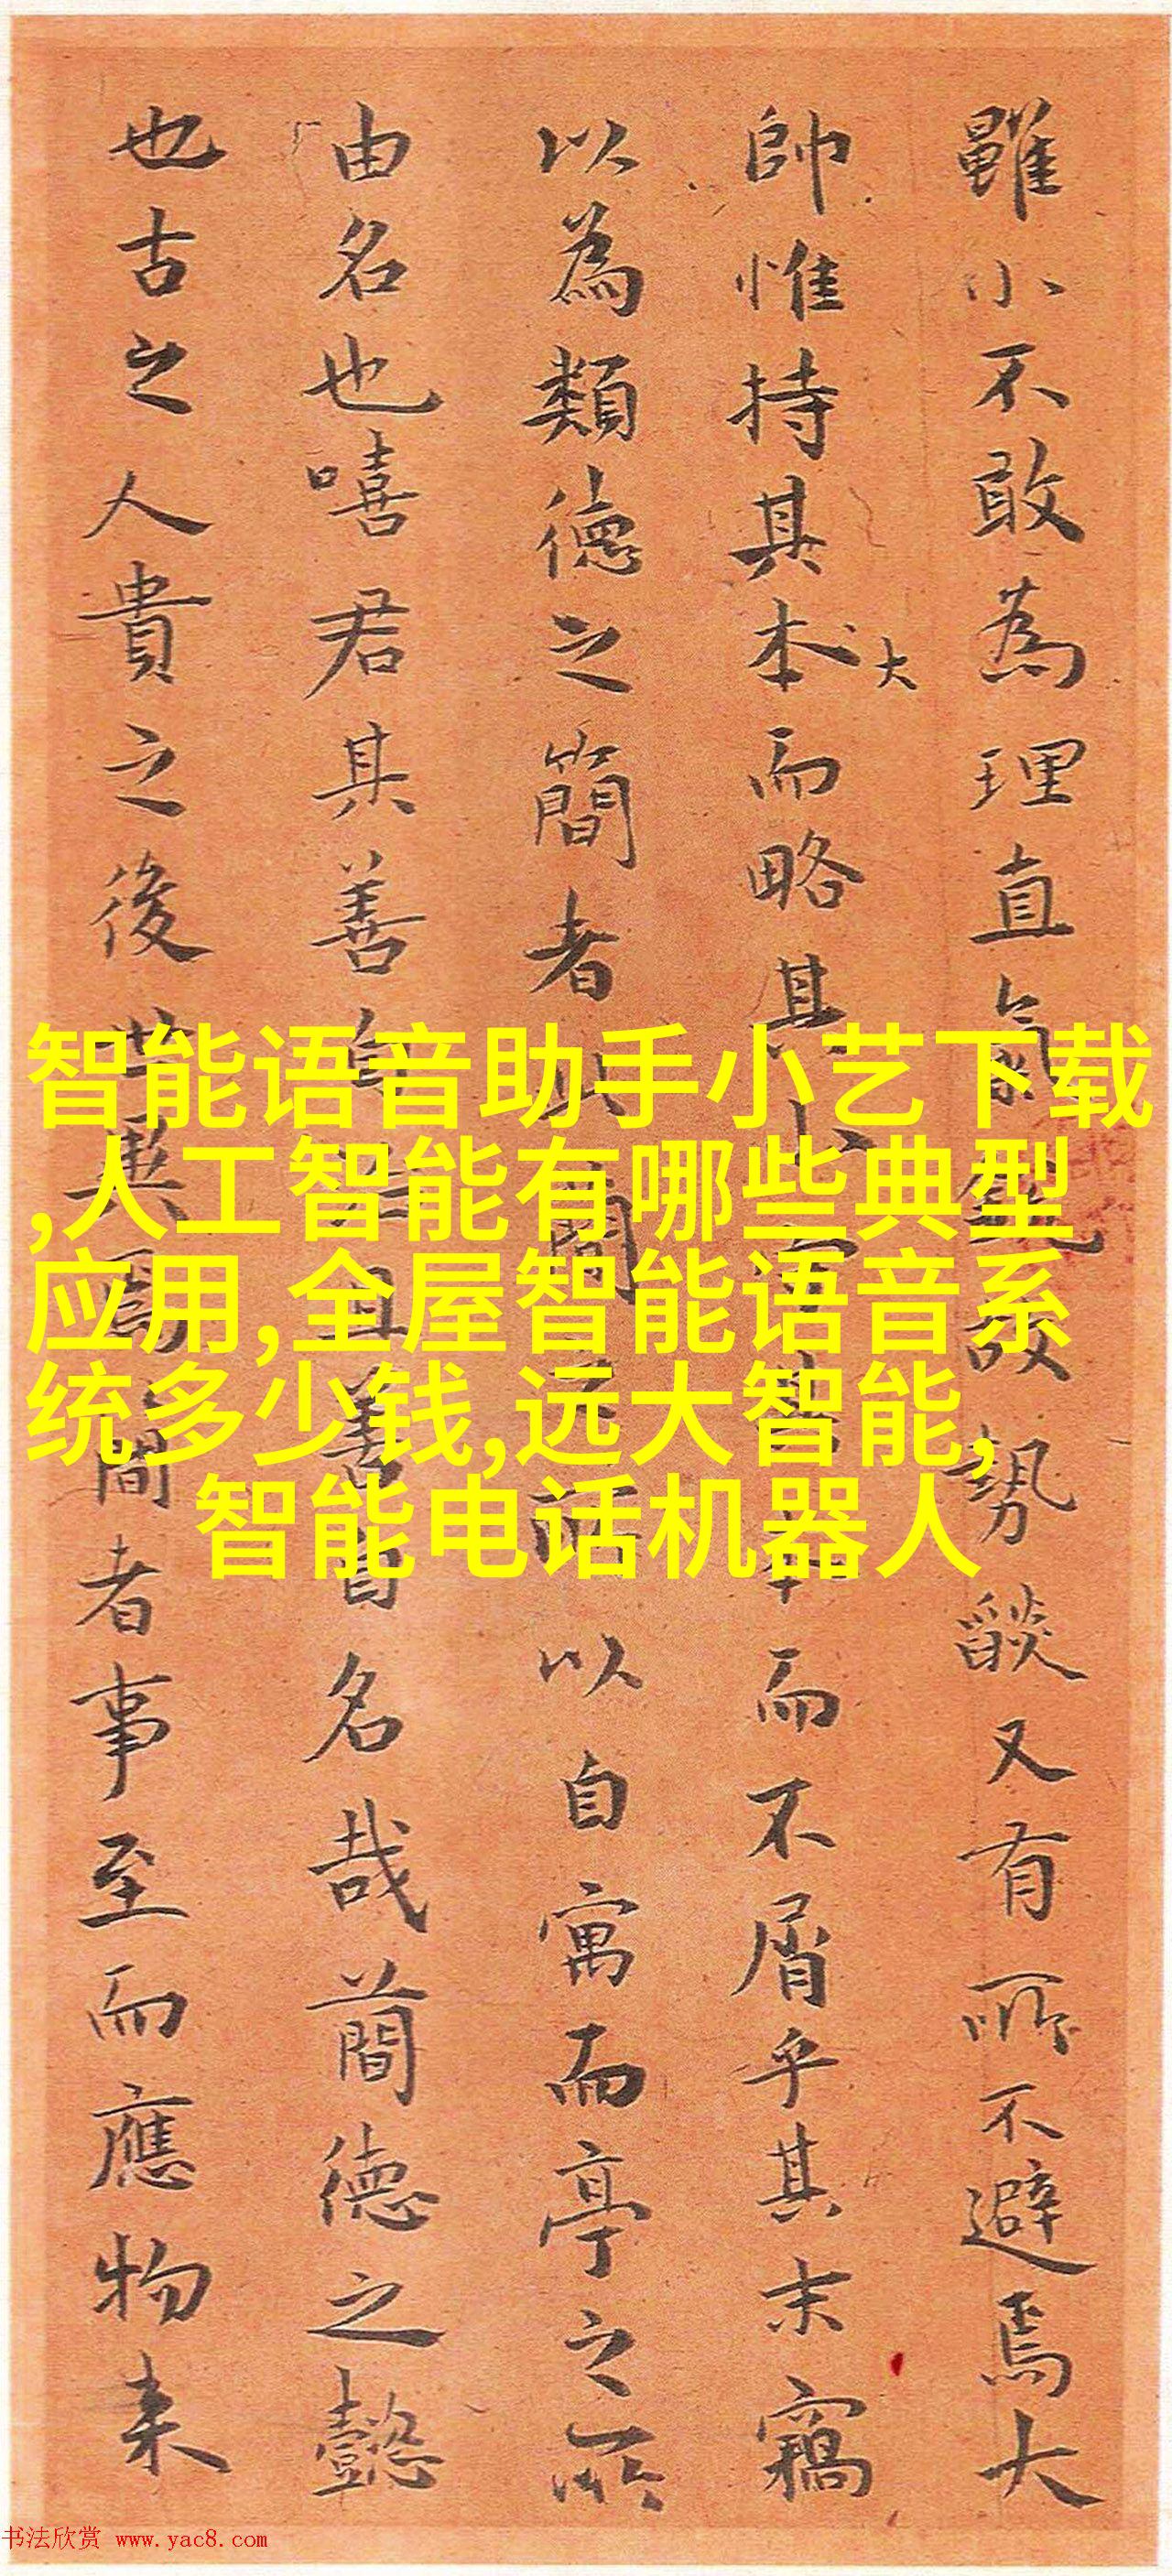 雖小不敢為理直氣銳故勢燄又有所不避焉大
帥惟持其本而略其小而不屑乎其末竊
大
以為類德之簡者以自寓而亭之所
由名也嘻君其善自且善自名哉蕳德之懿
也古之人貴之後世間者事至而應物来
智能语音助手小艺下载
,人工智能有哪些典型
应用,全屋智能语音系
统多少钱,远大智能,
智能电话机器人
书法欣赏 www.yac8.com